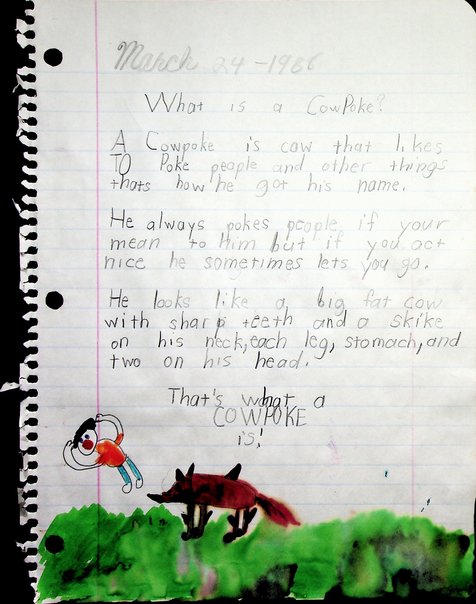 March 24-1986
What is a CowPoke?
A Cowpoke is cow that likes
TO Poke people and other things
thats how he got his name.
He always pokes people if your
mean to Him but if you act
nice he sometimes lets you go.
He looks like a big fat cow
with sharp teeth and a skike
on his neck, each leg, stomach, and
two on his head.
That's what a
COWPOKE
is!